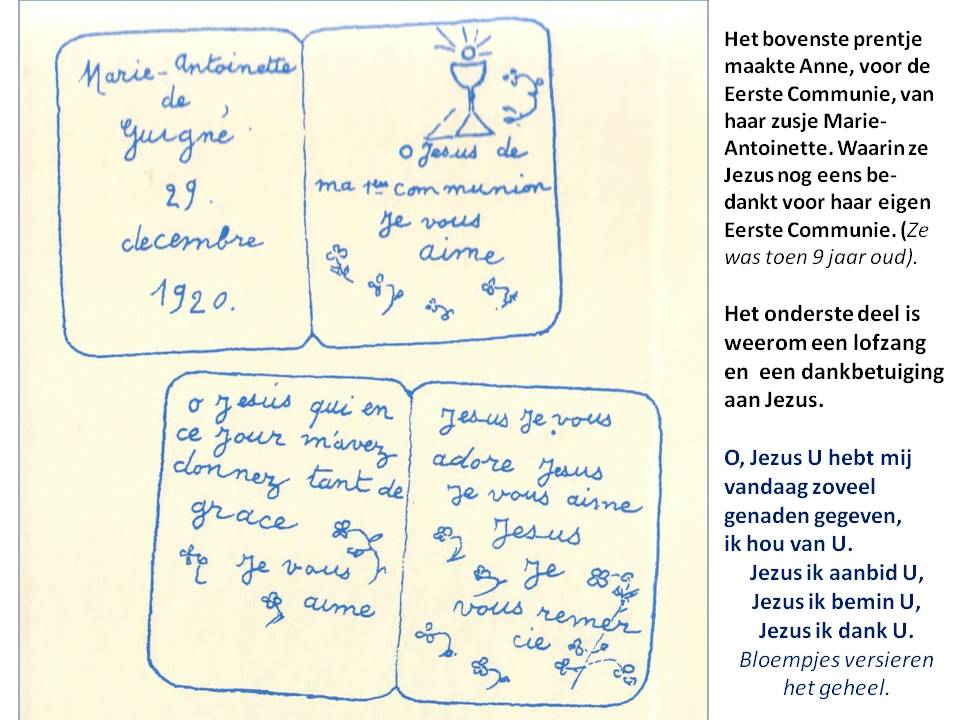 Marie-Antoinette
de
Guigné
29.
decembre
1920.
O Jesus de
ma 1ère communion
Je vous
aime
o Jesus qui en
ce jour m'avez
donnez tant de
grace
Je vous
aime
Jesus Je vous
adore Jesus
Je vous aime
Jesus
Je
vous remer
cie
Het bovenste prentje
maakte Anne, voor de
Eerste Communie, van
haar zusje Marie-
Antoinette. Waarin ze
Jezus nog eens be-
dankt voor haar eigen
Eerste Communie. (Ze
was toen 9 jaar oud).
Het onderste deel is
weerom een lofzang
en een dankbetuiging
aan Jezus.
O, Jezus U hebt mij
vandaag zoveel
genaden gegeven,
ik hou van U.
Jezus ik aanbid U,
Jezus ik bemin U,
Jezus ik dank U.
Bloempjes versieren
het geheel.